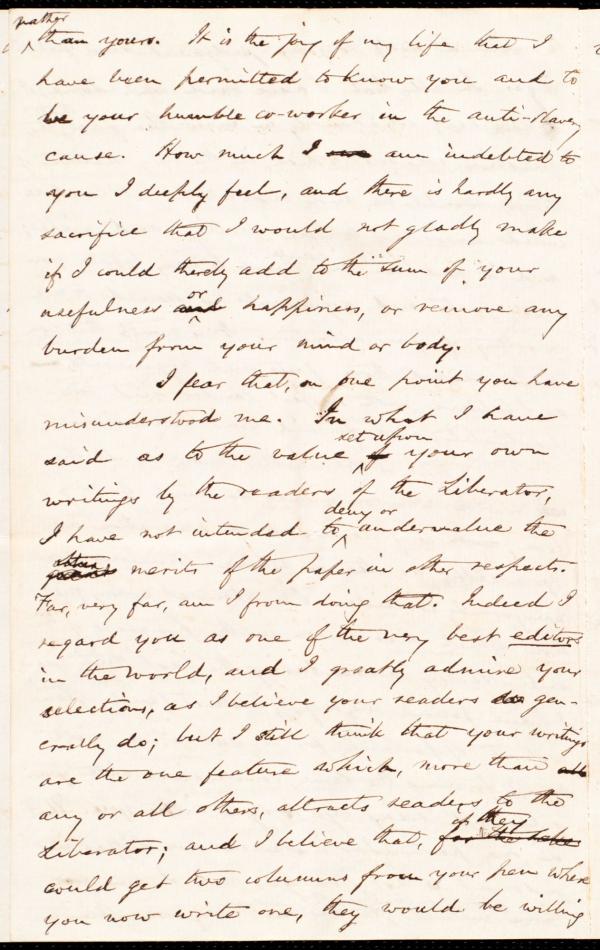 rather
than yours. It is the joy of my life that I
have been permitted to know you and to
be your humble co-worker in the anti-slavery
cause. How much I am indebted to
you I deeply feel, and there is hardly any
sacrifice that I would not gladly make
if I could thereby add to the sum of your
or
usefulness and happiness, or remove any
burden from your mind or body.
I fear that, on one point you have
misunderstood me. In what I have
set upon
said as to the value of your own
writings by the readers of the Liberator,
deny or
I have not intended to undervalue the
merits of the paper in other respects.
Far, very far, am I from doing that. Indeed I
regard you as one of the very best editors
in the world, and I greatly admire your
selections, as I believe your readers do gen-
erally do; but I still think that your writings
are the one feature which, more than all
any or all others, attracts readers to the
if they
Liberator; and I believe that, for the sake
could get two columns from your pen where
you now write one, they would be willing